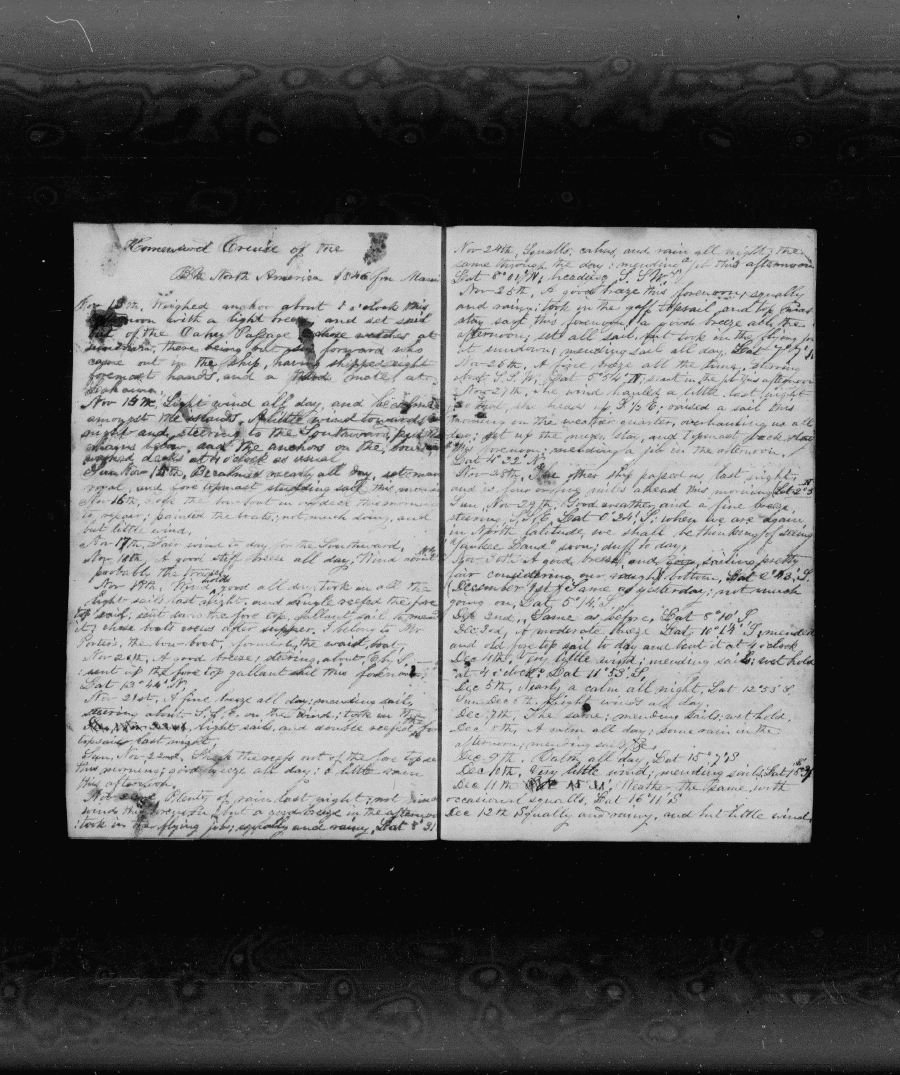 Homeward Cruise of the
Bk. North America 1846 from Maui
Nov 13th, Weighed anchor about 1 o'clock this
noon with a light breeze, and set sail
out of the Oahu Passage watches at
sundown, there being but forward who
came out in the ship, having shipped eight
foremast hands, and a third mate, at
Lahaina
Nov 14th Light wind all day, and becalmed
amongst the islands. A little wind towards
night and, steering to the Southward, got the
chains below, and the anchors on the bows
washed decks at 4 o'clock as usual
Sun. Nov 15th, Becalmed nearly all day, set main
royal, and fore topmast studding sail this morning
Nov 16th, took the deck this morning
to repair; painted the boats; not much doing, and
but little wind,
Nov 17th, Fair wind to day for the Southward,
Nov 18th, A good stiff breeze all day, Wind
probably the trades
Nov 19th, Wind holds good all day, took in all the
light sails last night, and single reefed the fore
top sail, sent down the fore top gallant sail to mend
it, chose boats crews after supper. I belong to Mr
Porter's, the bow boat, formerly the waist boat,
Nov 20th, A good breeze, steering about S
sent up the fore top gallant sail this forenoon,
Lat 13°44' N.
Nov 21st, A fine breeze all day; mending sails,
steering about S.S.E. on the wind; took in the
light sails, and double reefed the
topsails last night
Sun, Nov 22nd, the reefs out of the fore topsail
this morning; good breeze all day; a little rain
this afternoon.
Nov 23rd Plenty of rain last night; not much
wind this forenoon, but a good breeze in the afternoon
took in the flying jib; squally and rainy, Lat 8°31'
Nov 24th, Squalls, calms, and rain all night; the
same through the day; mending jib this afternoon
Lat 8°21' N, heading S.S.W.
Nov 25th, A good breeze this forenoon; squally
and rainy; took in the gaff topsail, and top mast
stay sail this forenoon, a good breeze all the
afternoon; set all sail, but took in the flying jib
at sundown; mending sail all day, Lat 7°27' N
Nov 26th, A fine breeze all the time, steering
about S.S.W, Lat 5°54' N, sent in the jib this afternoon
Nov 27th, The wind hauled a little last night
so that she heads up S by E; raised a sail this
morning on the weather quarter, overhauling us all
day; got up the mizen stay, and topmast back stay
this forenoon; mending a jib in the afternoon,
Lat 4°28' N
Nov 28th, The other ship passed us last night,
and is four or five miles ahead this morning Lat 2°3'
Sun, Nov 29th, Good weather, and a fine breeze,
steering S.S.E, Lat 0°34' S; when we are again
in North latitude, we shall be thinking of seeing
"Yankee Land" soon; duff to day,
Nov 30th A good breeze, and good sailing pretty
fair considering our rough bottom, Lat 2°43' S.
December 1st, Same as yesterday; not much
going on, Lat 5°14' S.
Dec 2nd, Same as before, Lat 8°10' S.
Dec 3rd, A moderate breeze Lat 10°14' S, mended
and old fore top sail to day and bent it at 4 o'clock
Dec 4th, Very little wind; mending sails; wet hold
at 4 o'clock; Lat 11°53' S,
Dec 5th, Nearly a calm all night, Lat 12°53' S.
Sun, Dec 6th, Light winds all day,
Dec 7th, The same; mending sails; wet hold,
Dec 8th, A calm all day; some rain in the
afternoon; mending sails,
Dec 9th, Calm all day, Lat 15°7' S
Dec 10th, Very little wind; mending sails; Lat 15°
Dec 11th Weather the same, with
occasional squalls, Lat 16°11' S
Dec 12th Squally and rainy, and but little wind,